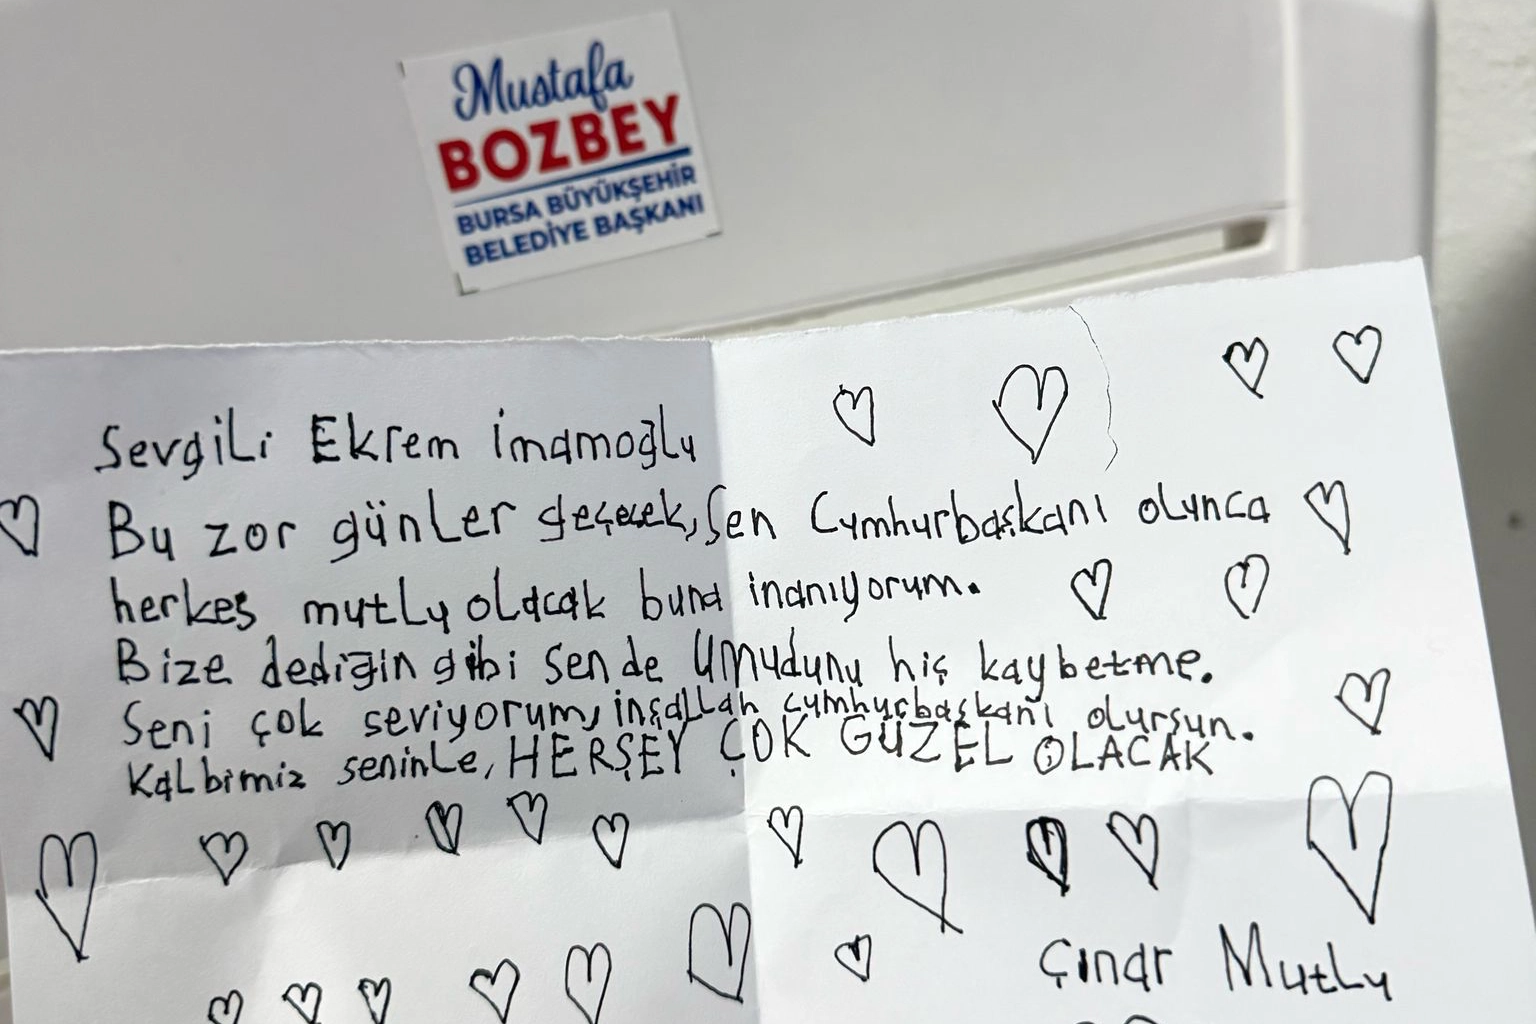 Mustafa
BOZBEY
BURSA BÜYÜKŞEHİR
BELEDİYE BAŞKANI
Sevgili Ekrem İmamoğlu
Bu zor günler geçecek, Sen Cumhurbaşkanı olunca
herkes mutlu olacak buna inanıyorum.
Bize dediğin gibi sen de Umudunu hiç kaybetme.
Seni çok seviyorum, inşallah cumhurbaşkanı olursun.
Kalbimiz seninle, HERŞEY ÇOK GÜZEL OLACAK
Çınar Mutlu